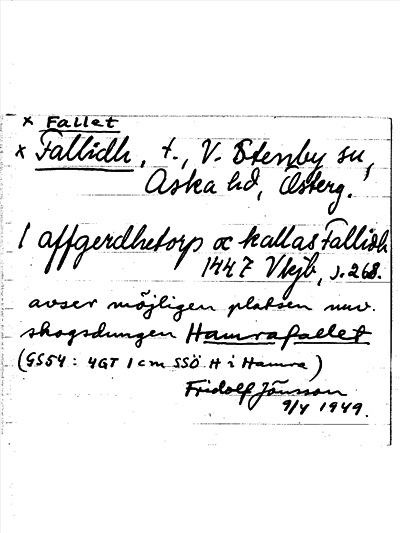 × Fallet
× Fallidh, t., V. Stenby sn,
Aska hd, Österg.
1 affgerdhetorp oc kallas Fallidh
1447 Vkjb, s. 268.
avser möjligen platsen nuv.
skogsdungen Hamrafallet
(GS54: 4GT 1 cm SSÖ H i Hamra)
Fridolf Jönsson
9/4 1949.